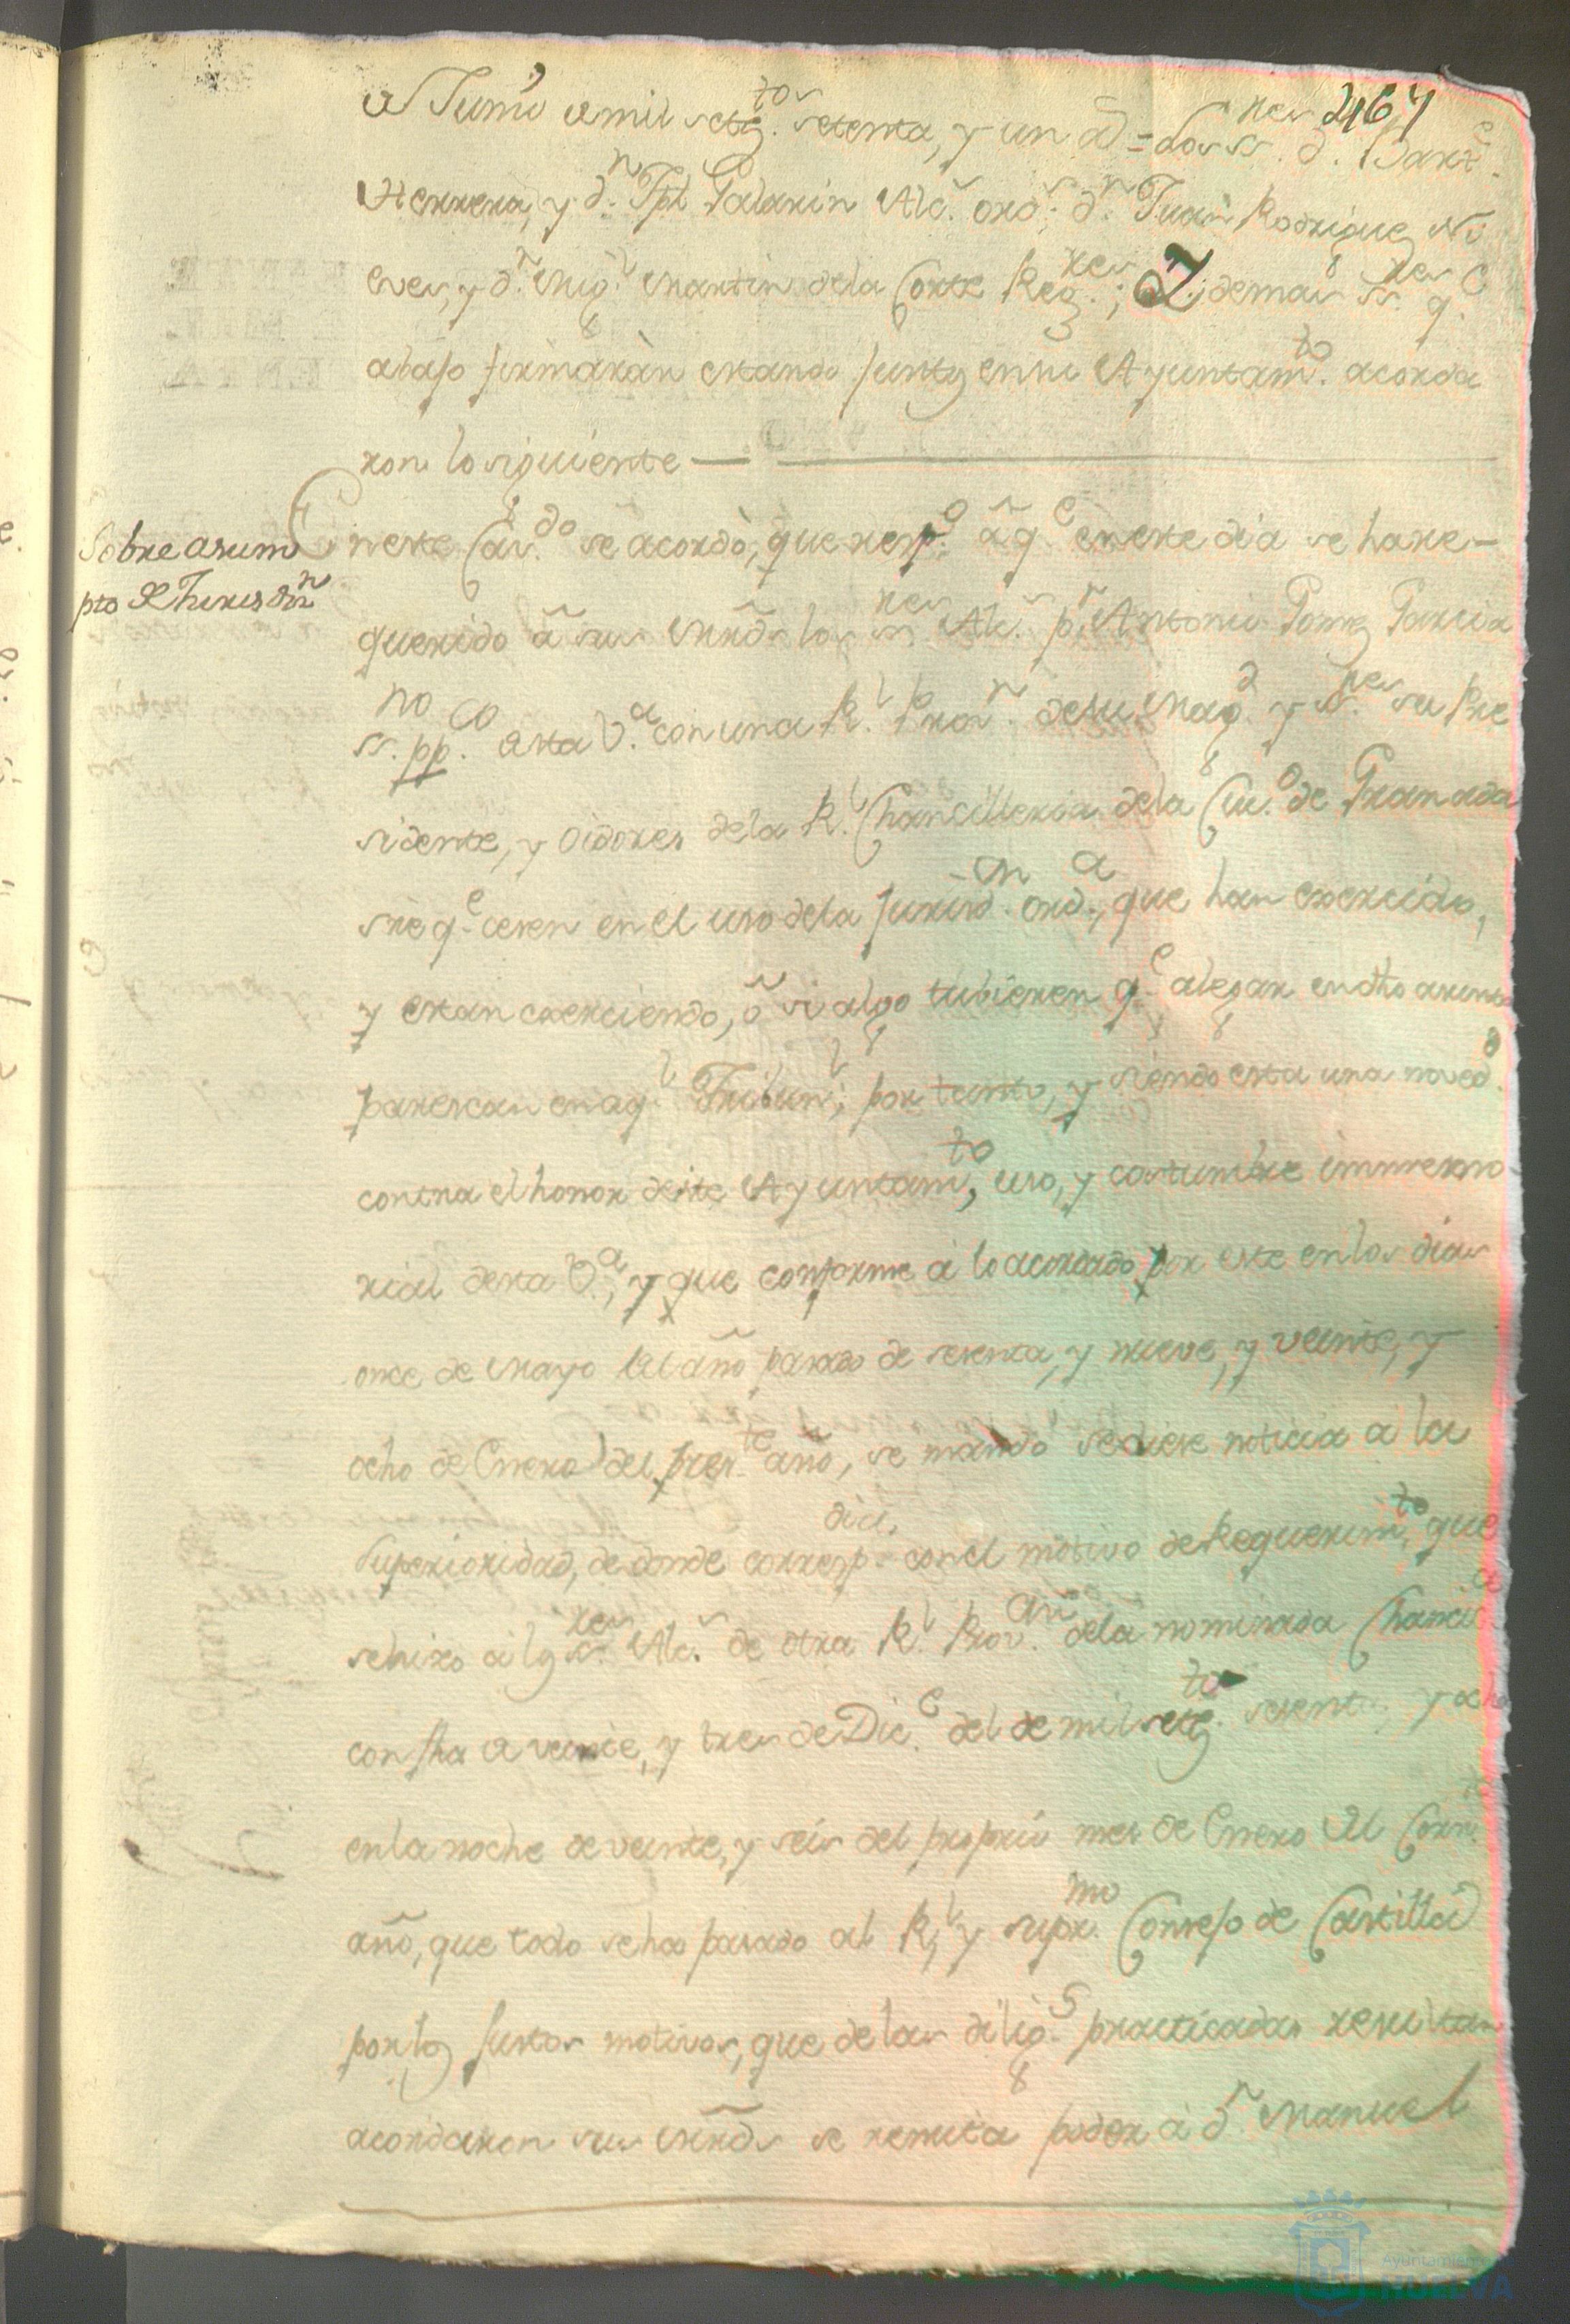 467
de Junio de mil setez.tos setenta, y un ã.s = Los ss.res d. Bart.e
Herrera, y d.n Jph Galarin Alc.s ord.s, d.n Juan Rodriguez Ni
eves, y d.n Mig.l Martin de la Corte Reg.res; y demas ss.res q.e
abajo firmaràn estando juntos en su Ayuntam.to acorda
ron lo siguiente
Sobre asum
pto de Jurisd.n
En este Cav.do se acordò, que resp.o à q.e en este dia se ha re-
querido â sus Mrds. los ss.res Alc.s p.r Antonio Gomez Garcia
ss.no pp.co de esta V.a con una R.l Prov.n de su Mag.d y ss.res su Pre
sidente, y oidores de la R.l Chancilleria de la Ciu.d de Granada
sre q.e cesen en el uso de la jurisd.on ord.a, que han exercido,
y estan exerciendo, ô si algo tubieren q.e alegar en dho asunto
parescan en aq.l Tribun.l; por tanto, y siendo esta una noved.d
contra el honor de este Ayuntam.to, uso, y costumbre immemo-
rial de esta V.a; y que conforme à lo acordado por este en los dias
once de Mayo del año pasado de sesenta, y nueve, y veinte, y
ocho de Enero del pres.te año, se mandò se diese noticia à la
Superioridad, de donde corresp.e con el motivo de Requerim.to que
se hizo à los ss.res Alc.s de otra R.l Prov.on de la nominada Chancill.a
con fha de veinte, y tres de Dic.e del de mil setez.tos sesenta, y ocho
en la noche de veinte, y seis del proprio mes de Enero del Corr.te
año, que todo se ha pasado al R.l y supr.mo Consejo de Castilla
por los justos motivos, que de las dilig.s practicadas resultan
acordaron sus Mrds. se remita poder à d.n Manuel
Ayuntamiento
HUELVA